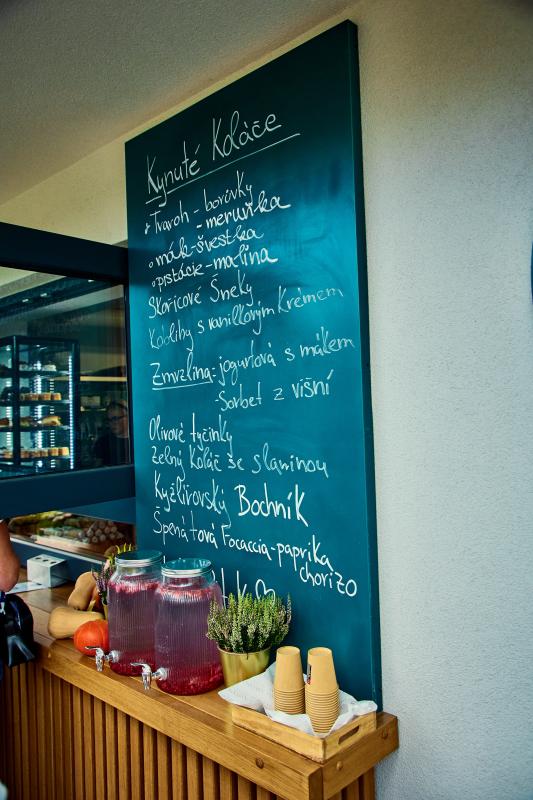 Kynuté Koláče
Tvaroh - borůvky
- meruňka
mák - švestka
pistácie - malina
Skořicové Šneky
Koblihy s vanilkovým Krémem
Zmrzlina: jogurtová s mákem
- Sorbet z višní
Olivové tyčinky
Zelný Koláč se slaninou
Kyžlířovský Bochník
Špenátová Focaccia - paprika
chorizo